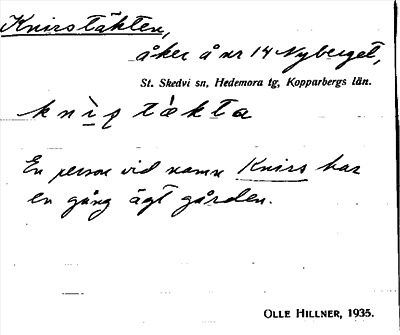 Knirstäkten,
åker å nr 14 Nyberget,
St. Skedvi sn, Hedemora tg, Kopparbergs län.
En person vid namn Knirs har
en gång ägt gården.
OLLE HILLNER, 1935.